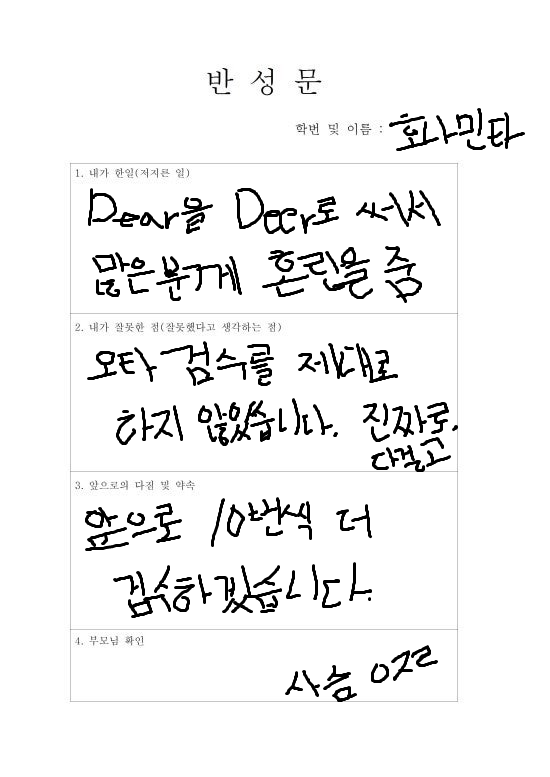 반 성 문
학번 및 이름 : 효사민타
1. 내가 한일(저지른 일)
Dear을 Deer로 써서
많은분께 혼란을 줌
2. 내가 잘못한 점(잘못했다고 생각하는 점)
오타 검수를 제대로
하지 않았습니다. 진짜로.
다걸고
3. 앞으로의 다짐 및 약속
앞으로 10번씩 더
검수하겠습니다.
4. 부모님 확인
사슴 올림